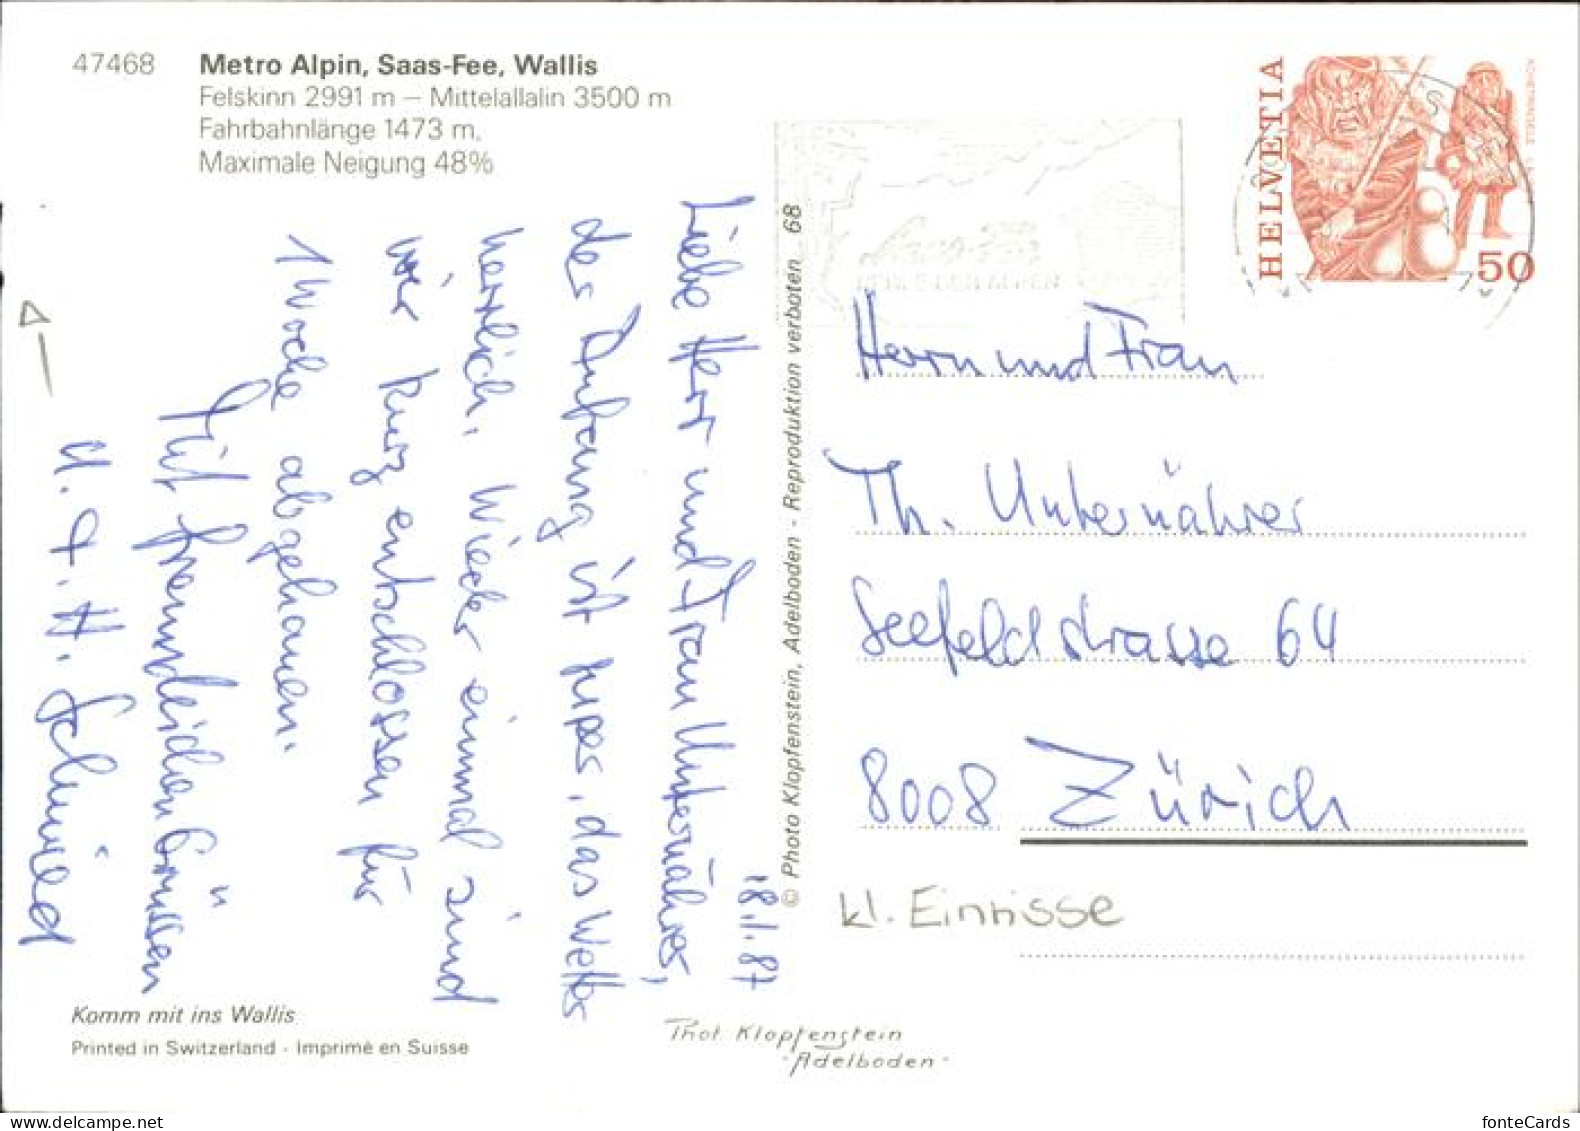 47468 Metro Alpin, Saas-Fee, Wallis
Felskinn 2991 m – Mittelallalin 3500 m
Fahrbahnlänge 1473 m,
Maximale Neigung 48%
18.1.87
Liebe Herr und Frau Unternährer,
der Anfang ist super, das Wetter
herrlich. Wieder einmal sind
wir kurz entschlossen für
1 Woche abgehauen.
Mit freundlichen Grüssen
H. Schmied
Komm mit ins Wallis
Printed in Switzerland - Imprimé en Suisse
© Photo Klopfenstein, Adelboden - Reproduktion verboten 68
Phot Klopfenstein
-Adelboden-
HELVETIA
50
Herrn und Frau
Th. Unternährer
Seefeldstrasse 64
8008 Zürich
kl. Einrisse
www.delcampe.net
fonteCards